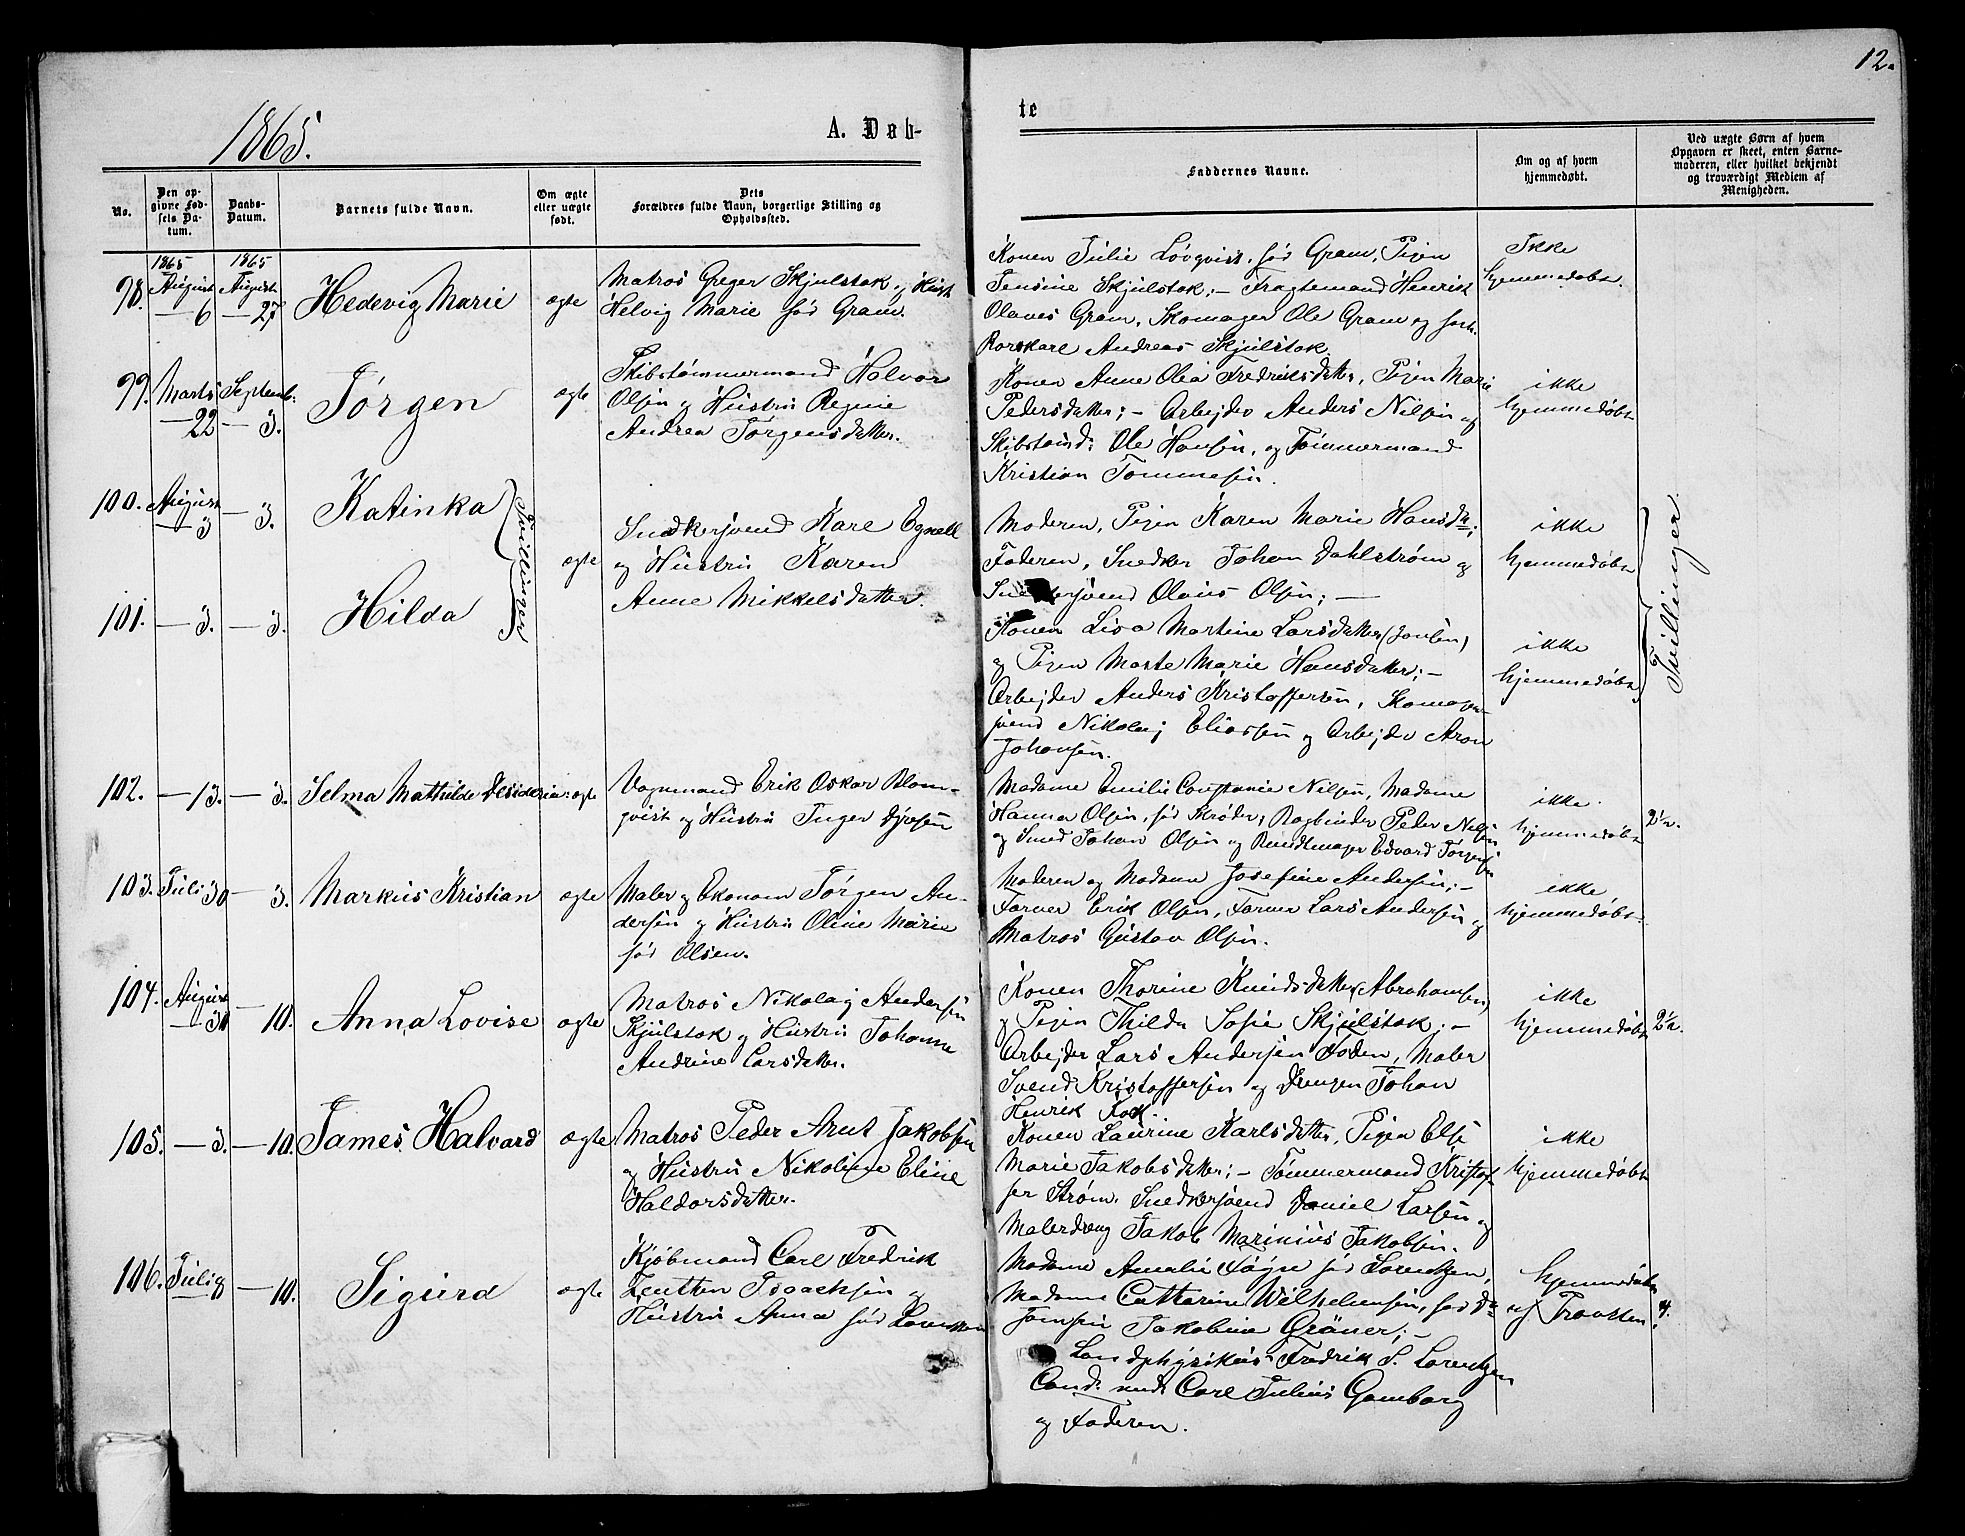 12.
1865.
A. Døb-
te
No.
Den op-
givne Fød-
sels Da-
tum.
Daabs-
Datum.
Barnets fulde Navn.
Om ægte
eller uægte
født.
Dets
Forældres fulde Navn, borgerlige Stilling og
Opholdssted.
Faddernes Navne.
Om og af hvem
hjemmedøbt.
Ved uægte Børn af hvem
Opgaven er skeet, enten Barne-
moderen, eller hvilket bekjendt
og troværdigt Medlem af
Menigheden.
1865 1865
98. August 6 August 27 Hedevig Marie ægte
Matros Greger Skjulstok og Hust
Helvig Marie fød Gram.
Konen Julie Lövqvist, fød Gram, Pigen
Jensine Skjulstok; - Fragtemand Henrik
Olaves Gram, Skomager Ole Gram og
Andreas Skjulstok.
Ikke
hjemmedøbt.
99. Marts 22 Septemb. 3. Jörgen ægte
Skibstømmermand Halvor
Olsen og Hustru Regine
Andrea Jörgensdatter.
Konen Anne Olea Fredriksdatter, Pigen Marie
Pedersdatter; - Arbejder Anders Nilsen og
Skibstømd: Ole Hansen, og Tömmermand
Kristian Tommesen.
ikke
hjemmedøbt
100. August 3 - 3. Katinka
Tvillinger
ægte
Snedkersvend Karl Egnell
og Hustru Karen
Anne Mikkelsdatter.
Moderen, Pigen Karen Marie Hansdtr;
Faderen, Snedker Johan Dahlström og
Snedkersvend Olaus Olsen; -
ikke
hjemmedøbt
Tvillinger
101. - 3. - 3. Hilda
Konen Lisa Martine Larsdatter
og Pigen Marte Marie Hansdatter; -
Arbejder Anders Kristoffersen, Skomager-
svend Nikolaj Eliassen og Arbejder Aron
Johansen.
ikke
hjemmedøbt
102. - 13. - 3. Selma Mathilde Desideria: ægte
Vognmand Erik Oskar Blom-
qvist og Hustru Inger
Madame Emilie Constance Nilsen, Madame
Hanna Olsen, fød Skrøder, Bogbinder Peder Nilsen
og Smed Johan Olsen og Edvard Jörgensen
ikke
hjemmedøbt
2½.
103. Juli 30 - 3. Markus Kristian ægte
Maler og Ekonom Jörgen An-
dersen og Hustru Oline Marie
fød Olsen.
Moderen og Madame Josefine Andersen; -
Farver Erik Olsen, Farver Lars Andersen og
Matros Gustav Olsen.
ikke
hjemmedøbt
104. August - 10. Anna Lovise ægte
Matros Nikolaj Andersen
Skjulstok og Hustru Johanne
Andrine Larsdatter.
Konen Thorine Knudsdatter (Abrahamsen)
og Pigen Thilda Sofie Skjulstok; -
Arbejder Lars Andersen Foden, Maler
Svend Kristoffersen og Drengen Johan
Henrik Fok.
ikke
hjemmedøbt
2½.
105. - 3. - 10. James Halvard ægte
Matros Peder Arnt Jakobsen
og Hustru Nikoline Eline
Haldorsdatter.
Konen Laurine Karlsdatter, Pigen Else
Marie Jakobsdatter; - Tömmermand Kristof-
fer Ström, Snedkersvend Daniel Larsen og
Malerdreng Jakob Marinius Jakobsen.
ikke
hjemmedøbt
106. Juli 8 - 10. Sigurd ægte
Kjøbmand Carl Fredrik
Zeutten Isaachsen og
Hustru Anna fød Lorentzen
Madame Amalie fød Lorentzen,
Madame Cathrine Wilhelmsen, fød
Jomfru Jakobine Gräner; -
Landphysikus Fredrik S. Lorentzen
Cand: med: Carl Julius Gamborg
og Faderen.
hjemmedøbt
af
4.